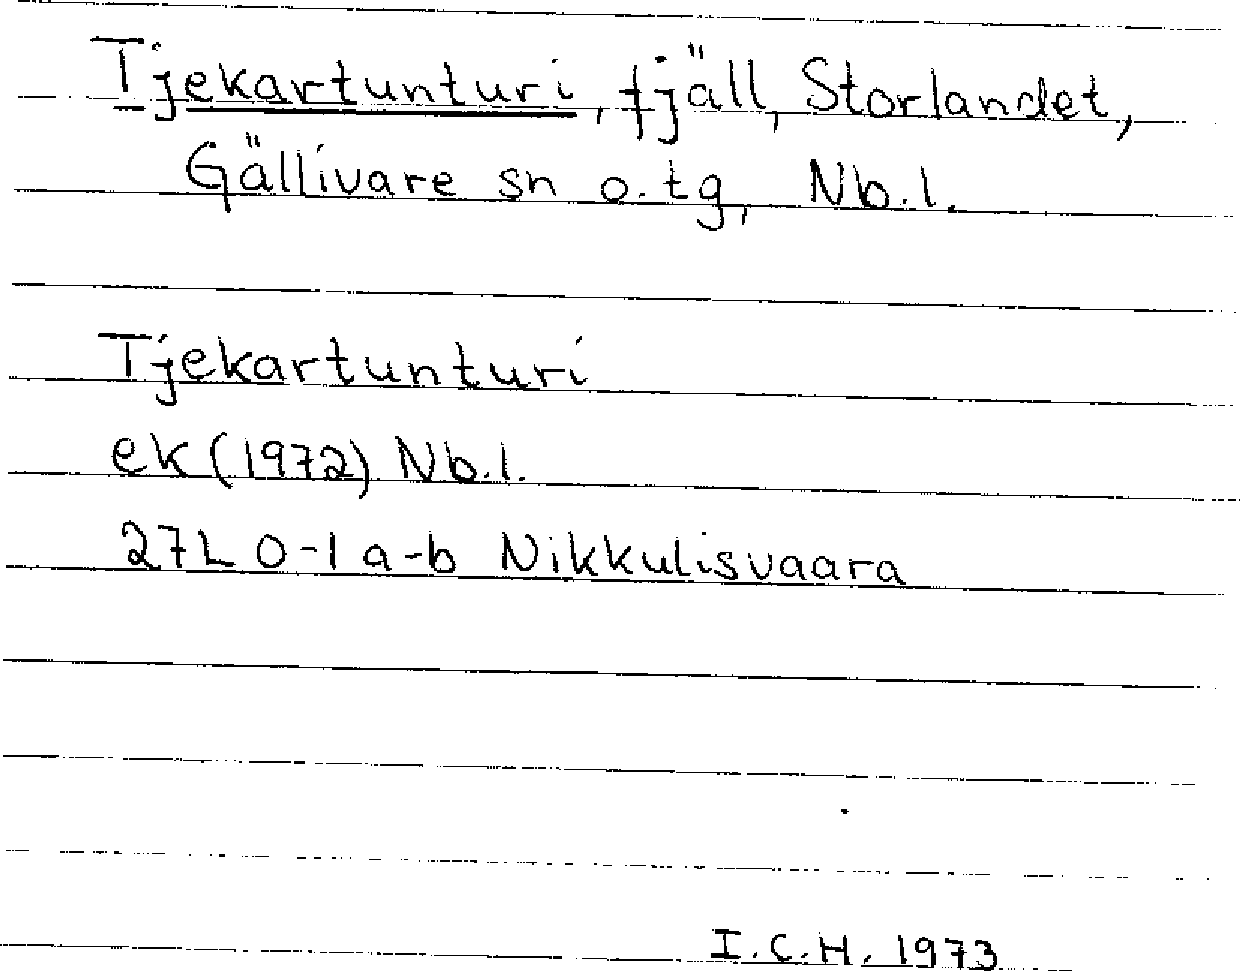 Tjekartunturi, fjäll, Storlandet,
Gällivare sn o. tg, Nb. l.
Tjekartunturi
ek (1972) Nb. l.
27L 0-1 a-b Nikkulisvaara
I. C. H. 1973